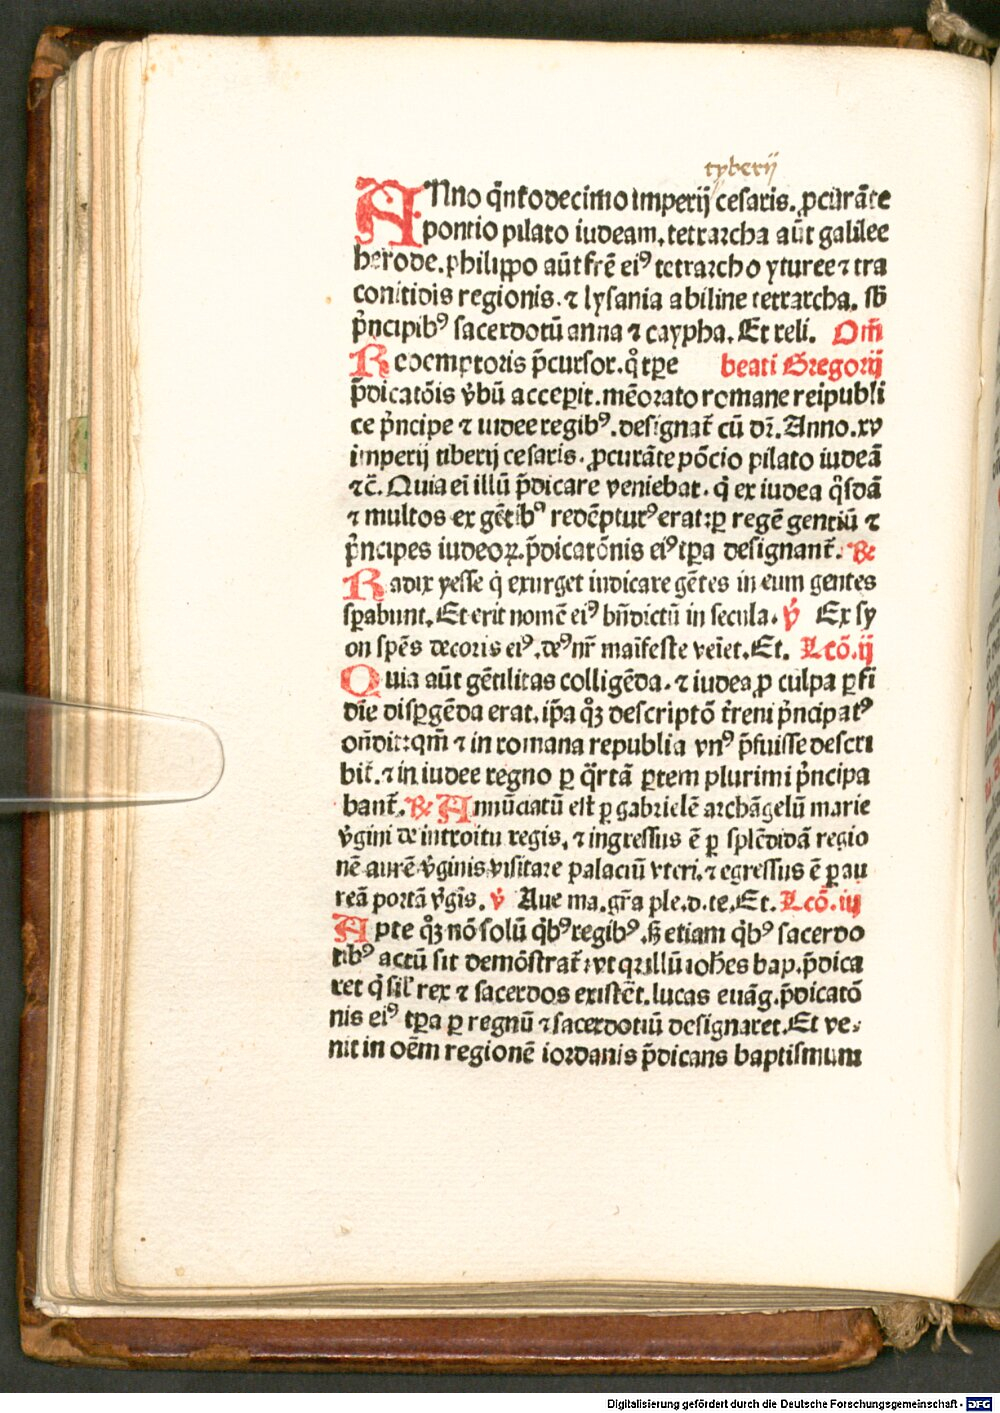 tyberij
ANno q̃ntodecimo imperij cesaris. ꝓcurãte
pontio pilato iudeam. tetrarcha aũt galilee
herode. philippo aũt frẽ eiꝰ tetrarcho yturee ⁊ tra
conitidis regionis. ⁊ lysania abiline tetrarcha. sb̃
p̃ncipibꝰ sacerdotũ anna ⁊ caypha. Et reli. Om̃
Redemptoris p̃cursor. q̊ tꝑe beati Gregorij
p̃dicatõis v̓bũ acceꝑit. mẽorato romane reipubli
ce p̃ncipe ⁊ iudee regibꝰ. designat̃ cũ dr̃. Anno. xv
imperij tiberij cesaris. ꝓcurãte põcio pilato iudeã
⁊c̃. Quia ei illũ p̃dicare veniebat. q̇ ex iudea q̃sdã
⁊ multos ex gẽtibꝰ redẽpturꝰ erat: ꝑ regẽ gentiũ ⁊
p̃ncipes iudeoꝝ. p̃dicatõnis eiꝰ tꝑa designant̃. ℞
Radix yesse q̇ exurget iudicare gẽtes in eum gentes
sꝑabunt. Et erit nomẽ eiꝰ bñdictũ in secula. v̓ Ex sy
on spẽs decoris eiꝰ. deꝰ nr̃ maĩfeste veĩet. Et. Lcõ. ij
Quia aũt gẽtilitas colligẽda. ⁊ iudea ꝓ culpa ꝑfi
dĩe disꝑgẽda erat. ip̃a qꝫ̊ descriptõ t̓reni p̃ncipatꝰ
oñdit: qm̃ ⁊ in romana republia vnꝰ p̃fuisse descri
bit̃. ⁊ in iudee regno ꝑ q̃rtã ꝑtem plurimi p̃ncipa
bant̃. ℞ Annũciatũ est ꝑ gabrielẽ archãgelũ marie
v̓gini de introitu regis. ⁊ ingressus ẽ ꝑ splẽdidã regio
nẽ aurẽ v̓ginis visitare palaciũ vteri. ⁊ egressus ẽ ꝑ au
reã portã v̓gĩs. v̓ Aue ma. gr̃a ple. d. te. Et. Lcõ. iij
Apte qꝫ̊ nõ solũ q̃bꝰ regibꝰ. sꝫ etiam q̃bꝰ sacerdo
tibꝰ actũ sit demõstrat̃: vt qꝛ illũ ioh̃es bap. p̃dica
ret q̇ sil̓ rex ⁊ sacerdos existẽt. lucas euãg. p̃dicatõ
nis eiꝰ tꝑa ꝑ regnũ ⁊ sacerdotiũ designaret. Et ve⸗
nit in oẽm regionẽ iordanis p̃dicans baptismum
Digitalisierung gefördert durch die Deutsche Forschungsgemeinschaft - DFG